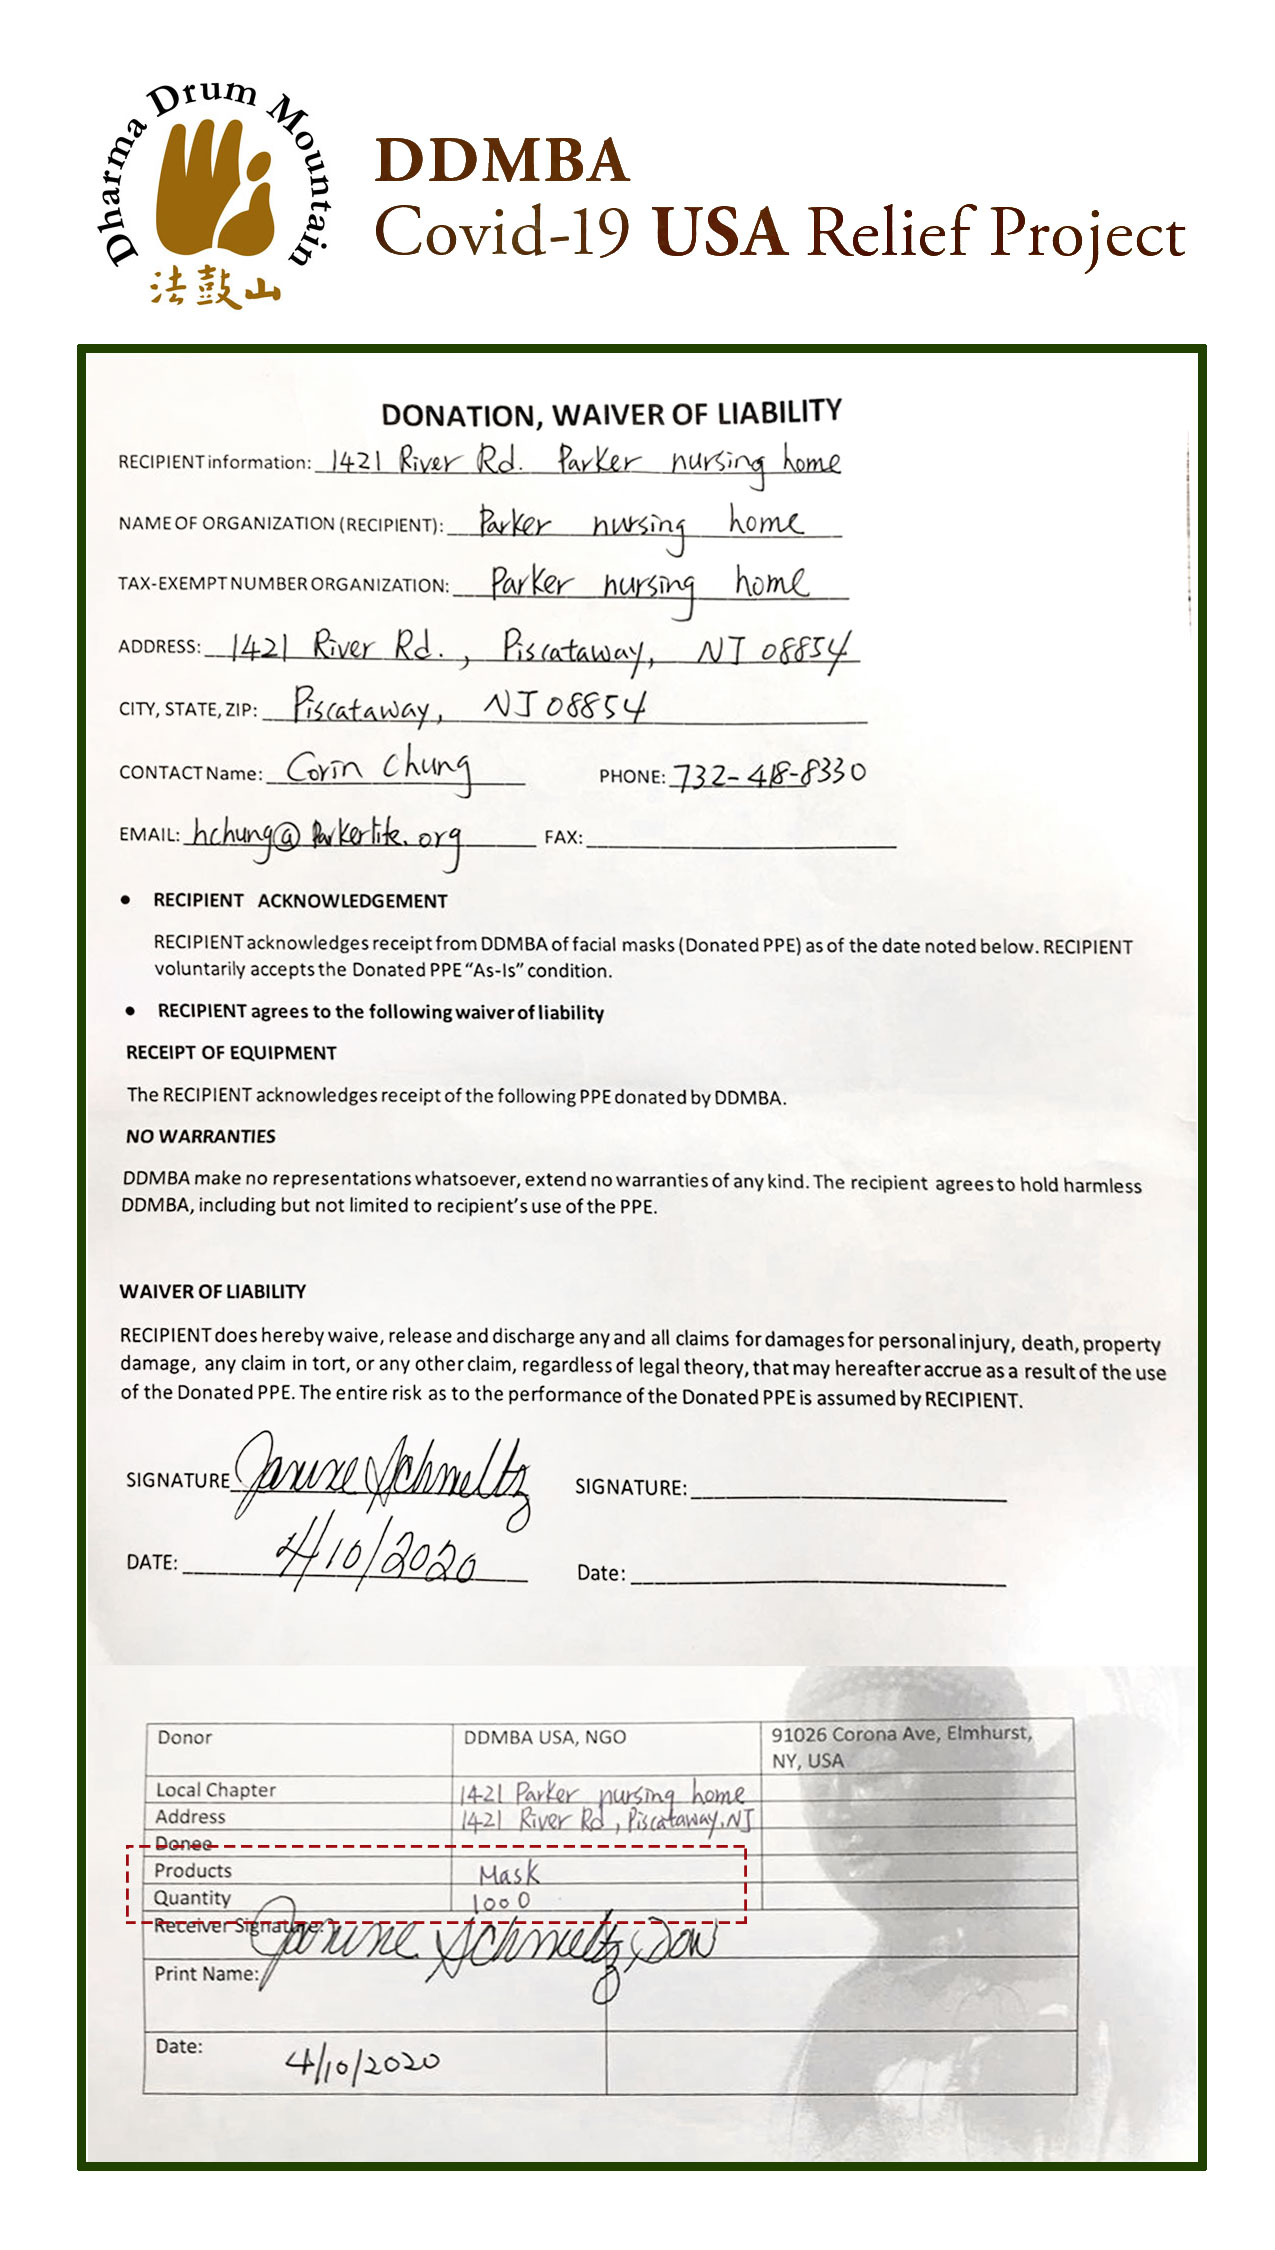 Dharma Drum Mountain
法鼓山
DDMBA
Covid-19 USA Relief Project
DONATION, WAIVER OF LIABILITY
RECIPIENT information: 1421 River Rd. Parker nursing home
NAME OF ORGANIZATION (RECIPIENT): Parker nursing home
TAX-EXEMPT NUMBER ORGANIZATION: Parker nursing home
ADDRESS: 1421 River Rd., Piscataway, NJ 08854
CITY, STATE, ZIP: Piscataway, NJ 08854
CONTACT Name: Corin Chung PHONE: 732-418-8330
EMAIL: hchung@Parkerlife.org FAX:
• RECIPIENT ACKNOWLEDGEMENT
RECIPIENT acknowledges receipt from DDMBA of facial masks (Donated PPE) as of the date noted below. RECIPIENT
voluntarily accepts the Donated PPE “As-Is” condition.
• RECIPIENT agrees to the following waiver of liability
RECEIPT OF EQUIPMENT
The RECIPIENT acknowledges receipt of the following PPE donated by DDMBA.
NO WARRANTIES
DDMBA make no representations whatsoever, extend no warranties of any kind. The recipient agrees to hold harmless
DDMBA, including but not limited to recipient’s use of the PPE.
WAIVER OF LIABILITY
RECIPIENT does hereby waive, release and discharge any and all claims for damages for personal injury, death, property
damage, any claim in tort, or any other claim, regardless of legal theory, that may hereafter accrue as a result of the use
of the Donated PPE. The entire risk as to the performance of the Donated PPE is assumed by RECIPIENT.
SIGNATURE Janine Schmeltz SIGNATURE:
DATE: 4/10/2020 Date:
Donor DDMBA USA, NGO 91026 Corona Ave, Elmhurst,
NY, USA
Local Chapter 1421 Parker nursing home
Address 1421 River Rd, Piscataway, NJ
Donee
Products Mask
Quantity 1000
Receiver Signature: Janine Schmeltz
Print Name:
Date: 4/10/2020